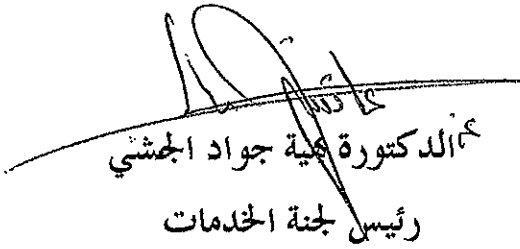 الدكتورة بهية جواد الجشي
رئيس لجنة الخدمات